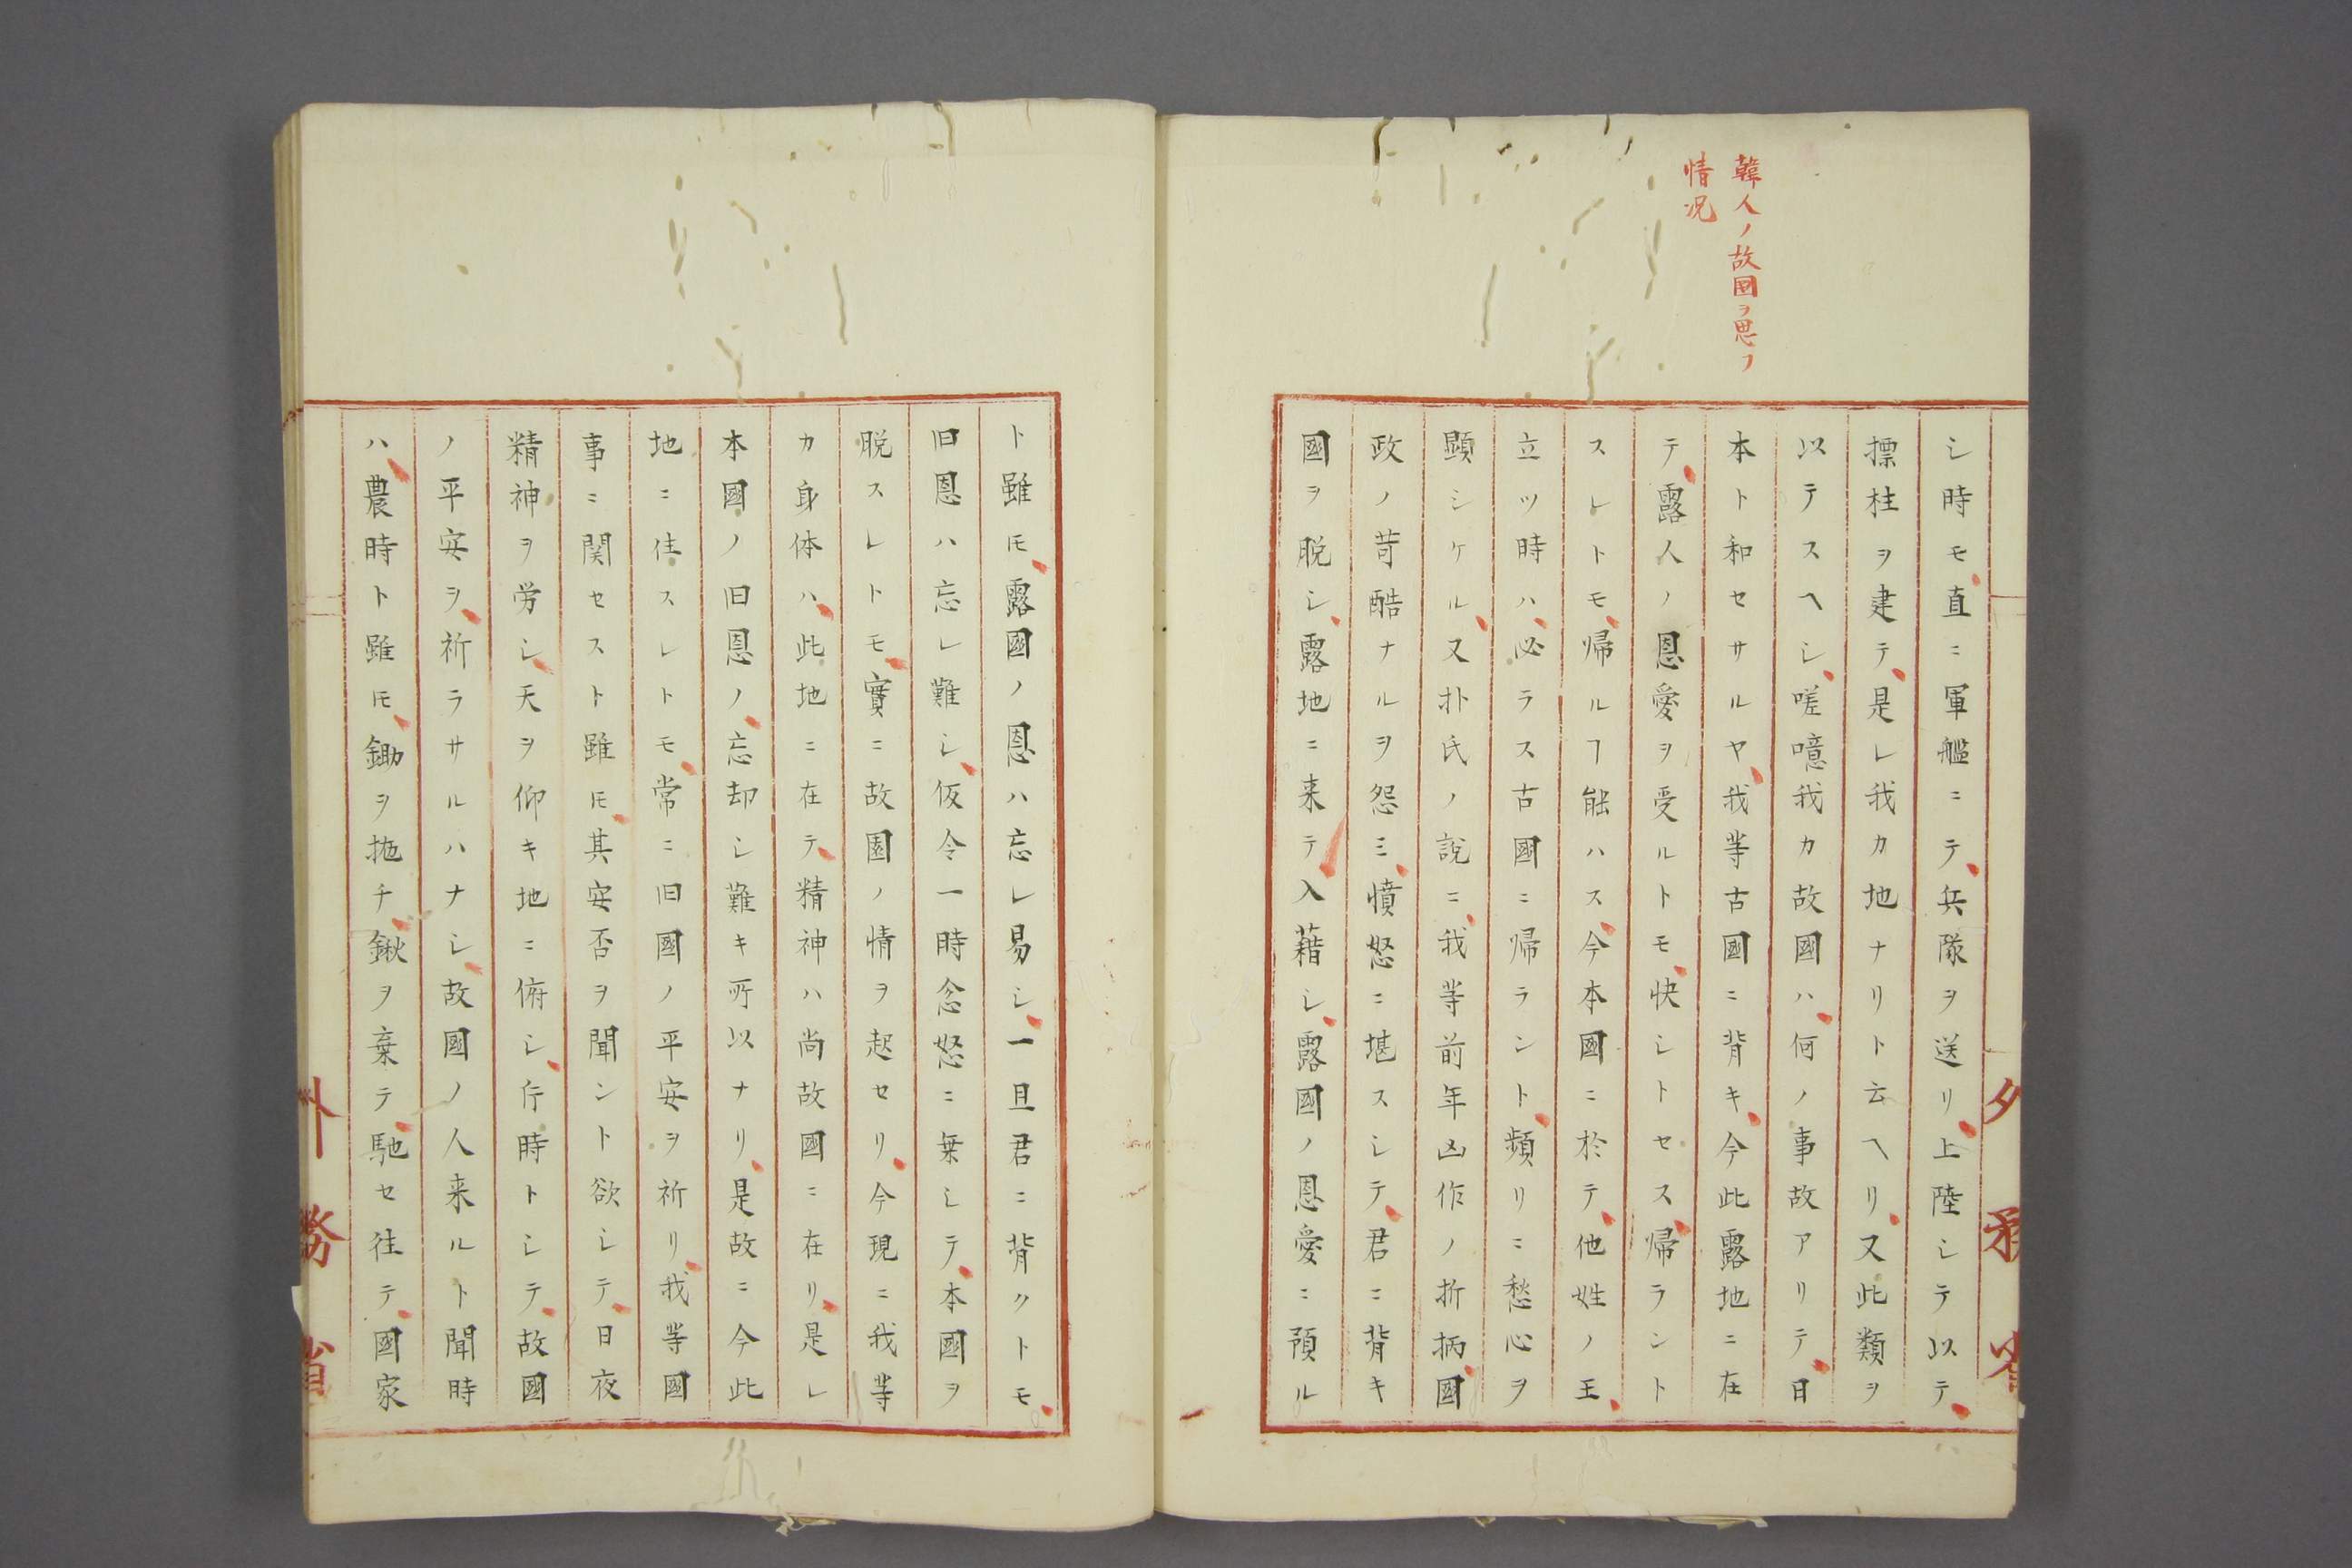 韓人ノ故国ヲ思フ
情况
シ時モ直ニ軍艦ニテ兵隊ヲ送リ上陸シテ以テ
標柱ヲ建テ是レ我カ地ナリト云ヘリ又此類ヲ
以テスヘシ嗟噫我カ故國ハ何ノ事故アリテ日
本ト和セサルヤ我等古國ニ背キ今此露地ニ在
テ露人ノ恩愛ヲ受ルトモ快シトセス帰ラント
スレトモ帰ルヿ能ハス今本國ニ於テ他姓ノ王
立ツ時ハ必ラス古國ニ帰ラント頻リニ愁心ヲ
顕シケル又朴氏ノ説ニ我等前年凶作ノ折柄國
政ノ苛酷ナルヲ怨ミ憤怒ニ堪スシテ君ニ背キ
國ヲ脱シ露地ニ来テ入藉シ露國ノ恩愛ニ預ル
ト雖モ露國ノ恩ハ忘レ易シ一旦君ニ背クトモ
旧恩ハ忘レ難シ仮令一時忿怒ニ乗シテ本國ヲ
脱スレトモ實ニ故園ノ情ヲ起セリ今現ニ我等
カ身体ハ此地ニ在テ精神ハ尚故國ニ在リ是レ
本國ノ旧恩ノ忘却シ難キ所以ナリ是故ニ今此
地ニ住スレトモ常ニ旧國ノ平安ヲ祈リ我等國
事ニ関セスト雖モ其安否ヲ聞ント欲シテ日夜
精神ヲ労シ天ヲ仰キ地ニ俯シ片時トシテ故國
ノ平安ヲ祈ラサルハナシ故國ノ人来ルト聞時
ハ農時ト雖モ鋤ヲ抛チ鍬ヲ棄テ馳セ往テ國家
外務省